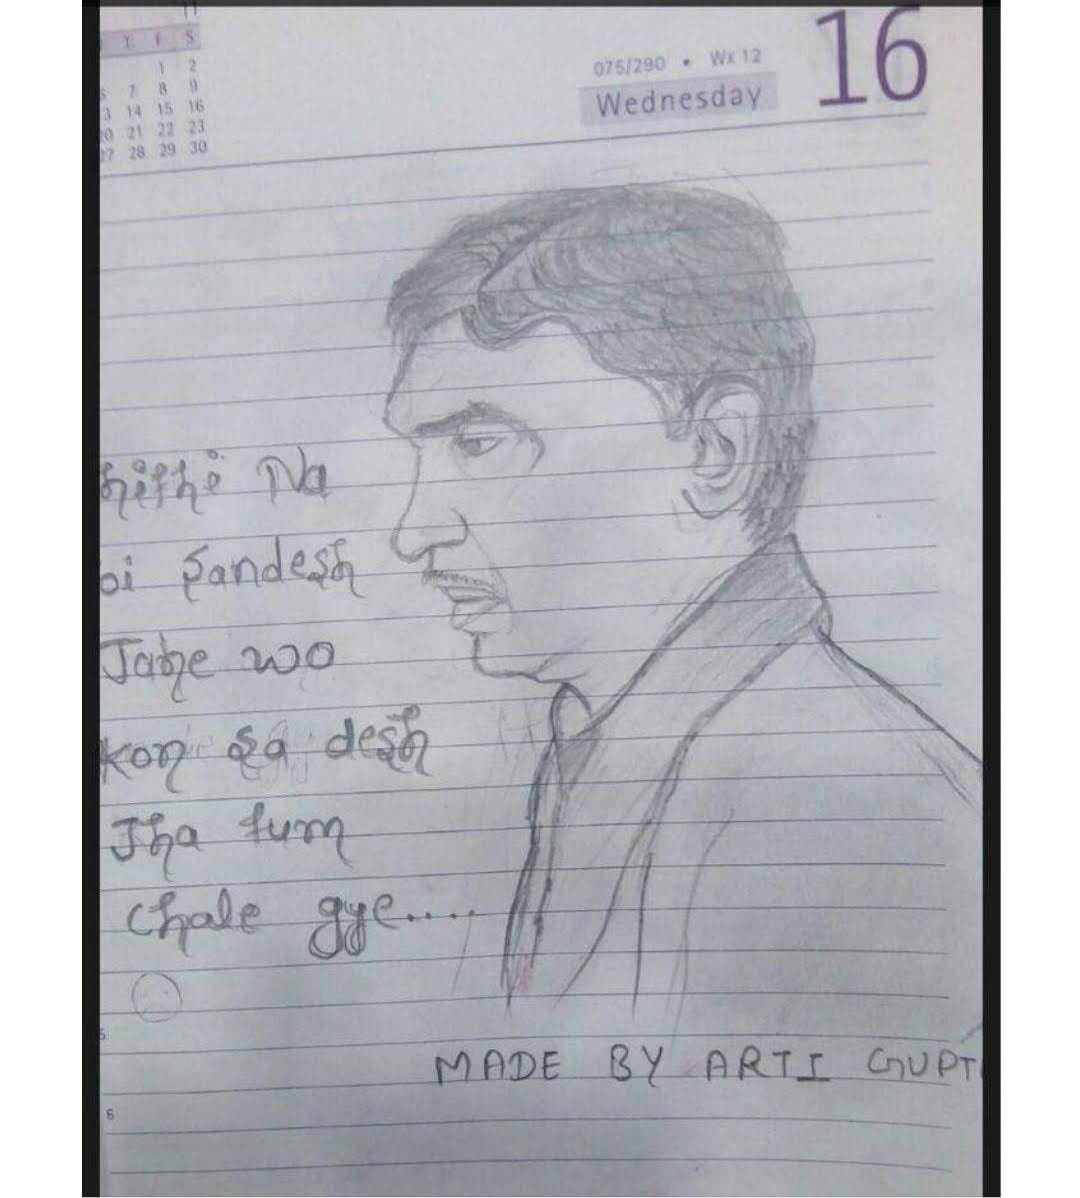 11
T F S
1 2
6 7 8 9
3 14 15 16
20 21 22 23
27 28 29 30
075/290 • Wk 12
Wednesday
16
hithi Na
oi Sandesh
Jane wo
kon sa desh
Jha tum
chale gye....
MADE BY ARTI GUPT
6